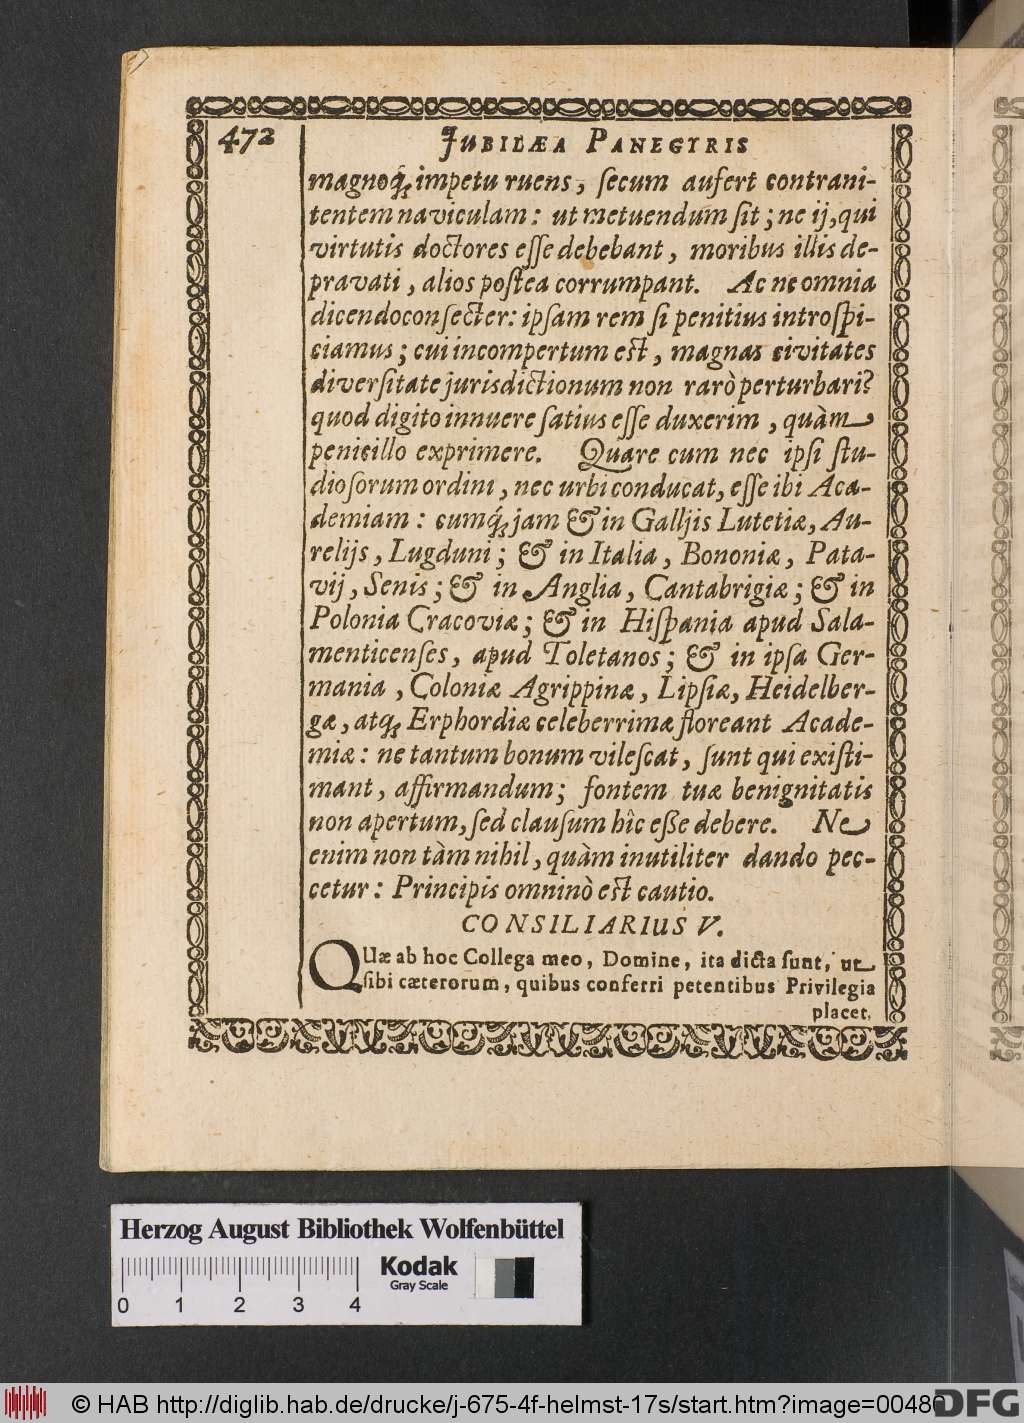 472
JUBILÆA PANEGYRIS
magnoq́; impetu ruens, secum aufert contrani-
tentem naviculam: ut metuendum sit; ne ij, qui
virtutis doctores esse debebant, moribus illis de-
pravati, alios postea corrumpant. Ac ne omnia
dicendo consecter: ipsam rem si penitius introspi-
ciamus; cui incompertum est, magnas civitates
diversitate jurisdictionum non rarò perturbari?
quod digito innuere satius esse duxerim, quàm
penicillo exprimere. Quare cum nec ipsi stu-
diosorum ordini, nec urbi conducat, esse ibi Aca-
demiam: cumq́; jam & in Galljis Lutetiæ, Au-
relijs, Lugduni; & in Italia, Bononiæ, Pata-
vij, Senis; & in Anglia, Cantabrigiæ; & in
Polonia Cracoviæ; & in Hispania apud Sala-
menticenses, apud Toletanos; & in ipsa Ger-
mania, Coloniæ Agrippinæ, Lipsiæ, Heidelber-
gæ, atq; Erphordiæ celeberrimæ floreant Acade-
miæ: ne tantum bonum vilescat, sunt qui existi-
mant, affirmandum; fontem tuæ benignitatis
non apertum, sed clausum hîc eße debere. Ne
enim non tàm nihil, quàm inutiliter dando pec-
cetur: Principis omninò est cautio.
CONSILIARIUS V.
QUæ ab hoc Collega meo, Domine, ita dicta sunt, ut
sibi cæterorum, quibus conferri petentibus Privilegia
placet,
Herzog August Bibliothek Wolfenbüttel
Kodak
Gray Scale
0 1 2 3 4
© HAB http://diglib.hab.de/drucke/j-675-4f-helmst-17s/start.htm?image=00480
DFG